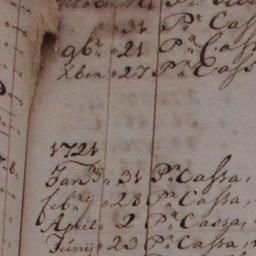 31 Pr Cass
9br 21 Pr Cass
Xber 27 Pr Cass
1721
Janry 31 Pr Cassa,
febry 28 Pr Cassa,
April 2 Pr Cassa,
Junij 23 Pr Cassa,